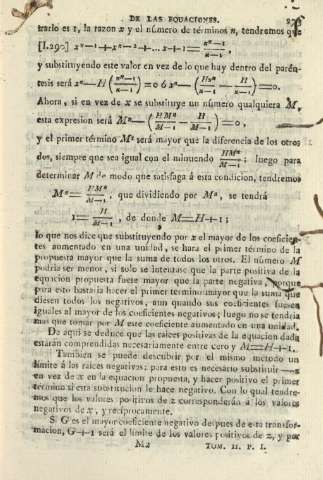 DE LAS EQUACIONES.
trario es 1, la razon x y el número de términos n, tendremos que
[I.290] xⁿ⁻¹+xⁿ⁻²+...x+1=(xⁿ−1)/(x−1),
y substituyendo este valor en vez de lo que hay dentro del parén-
tesis será xⁿ−H((xⁿ−1)/(x−1))=0 ó xⁿ−(Hxⁿ/(x−1)−H/(x−1))=0.
Ahora, si en vez de x se substituye un número qualquiera M,
esta expresion será Mⁿ−(HMⁿ/(M−1)−H/(M−1))=0,
y el primer término Mⁿ será mayor que la diferencia de los otros
dos, siempre que sea igual con el minuendo HMⁿ/(M−1); luego para
determinar M de modo que satisfaga á esta condicion, tendremos
Mⁿ=HMⁿ/(M−1), que dividiendo por Mⁿ, se tendrá
1=H/(M−1), de donde M=H+1;
lo que nos dice que substituyendo por x el mayor de los coeficien-
tes aumentado en una unidad, se hará el primer término de la
propuesta mayor que la suma de todos los otros. El número M
podria ser menor, si solo se intentase que la parte positiva de la
equacion propuesta fuese mayor que la parte negativa, porque
para esto bastaria hacer el primer término mayor que la suma que
diesen todos los negativos, aun quando sus coeficientes fuesen
iguales al mayor de los coeficientes negativos; luego no se tendrá
mas que tomar por M este coeficiente aumentado en una unidad.
De aquí se deduce que las raices positivas de la equacion dada
estarán comprendidas necesariamente entre cero y H+1.
Tambien se puede descubrir por el mismo metodo un
límite á las raices negativas; para esto es necesario substituir −z
en vez de x en la equacion propuesta, y hacer positivo el primer
término si esta substitucion le hace negativo. Con lo qual tendre-
mos que los valores positivos de z corresponderán á los valores
negativos de x, y reciprocamente.
Si G es el mayor coeficiente negativo despues de esta transfor-
macion, G+1 será el límite de los valores positivos de z, y por
M2 TOM. II. P. I.